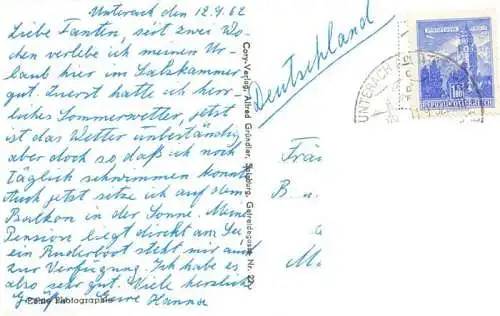 Unterach den 12.9.62
Liebe Tanten, seit zwei Wo-
chen verlebe ich meinen Ur-
laub hier im Salzkammer
gut. Zuerst hatte ich herr-
liches Sommerwetter, jetzt
ist das Wetter unbeständig,
aber doch so, daß ich noch
täglich schwimmen konnte
Auch jetzt sitze ich auf dem
Balkon in der Sonne. Meine
Pension liegt direkt am See
ein Ruderboot steht mir auch
zur Verfügung. Ich habe es
also sehr gut. Viele herzliche
Grüße Eure Hanna
Echte Photographie
Cosy-Verlag, Alfred Gründler, Salzburg, Getreidegasse Nr. 22
Deutschland
UNTERACH
1.50
REPUBLIK ÖSTERREICH
Frä
B
M